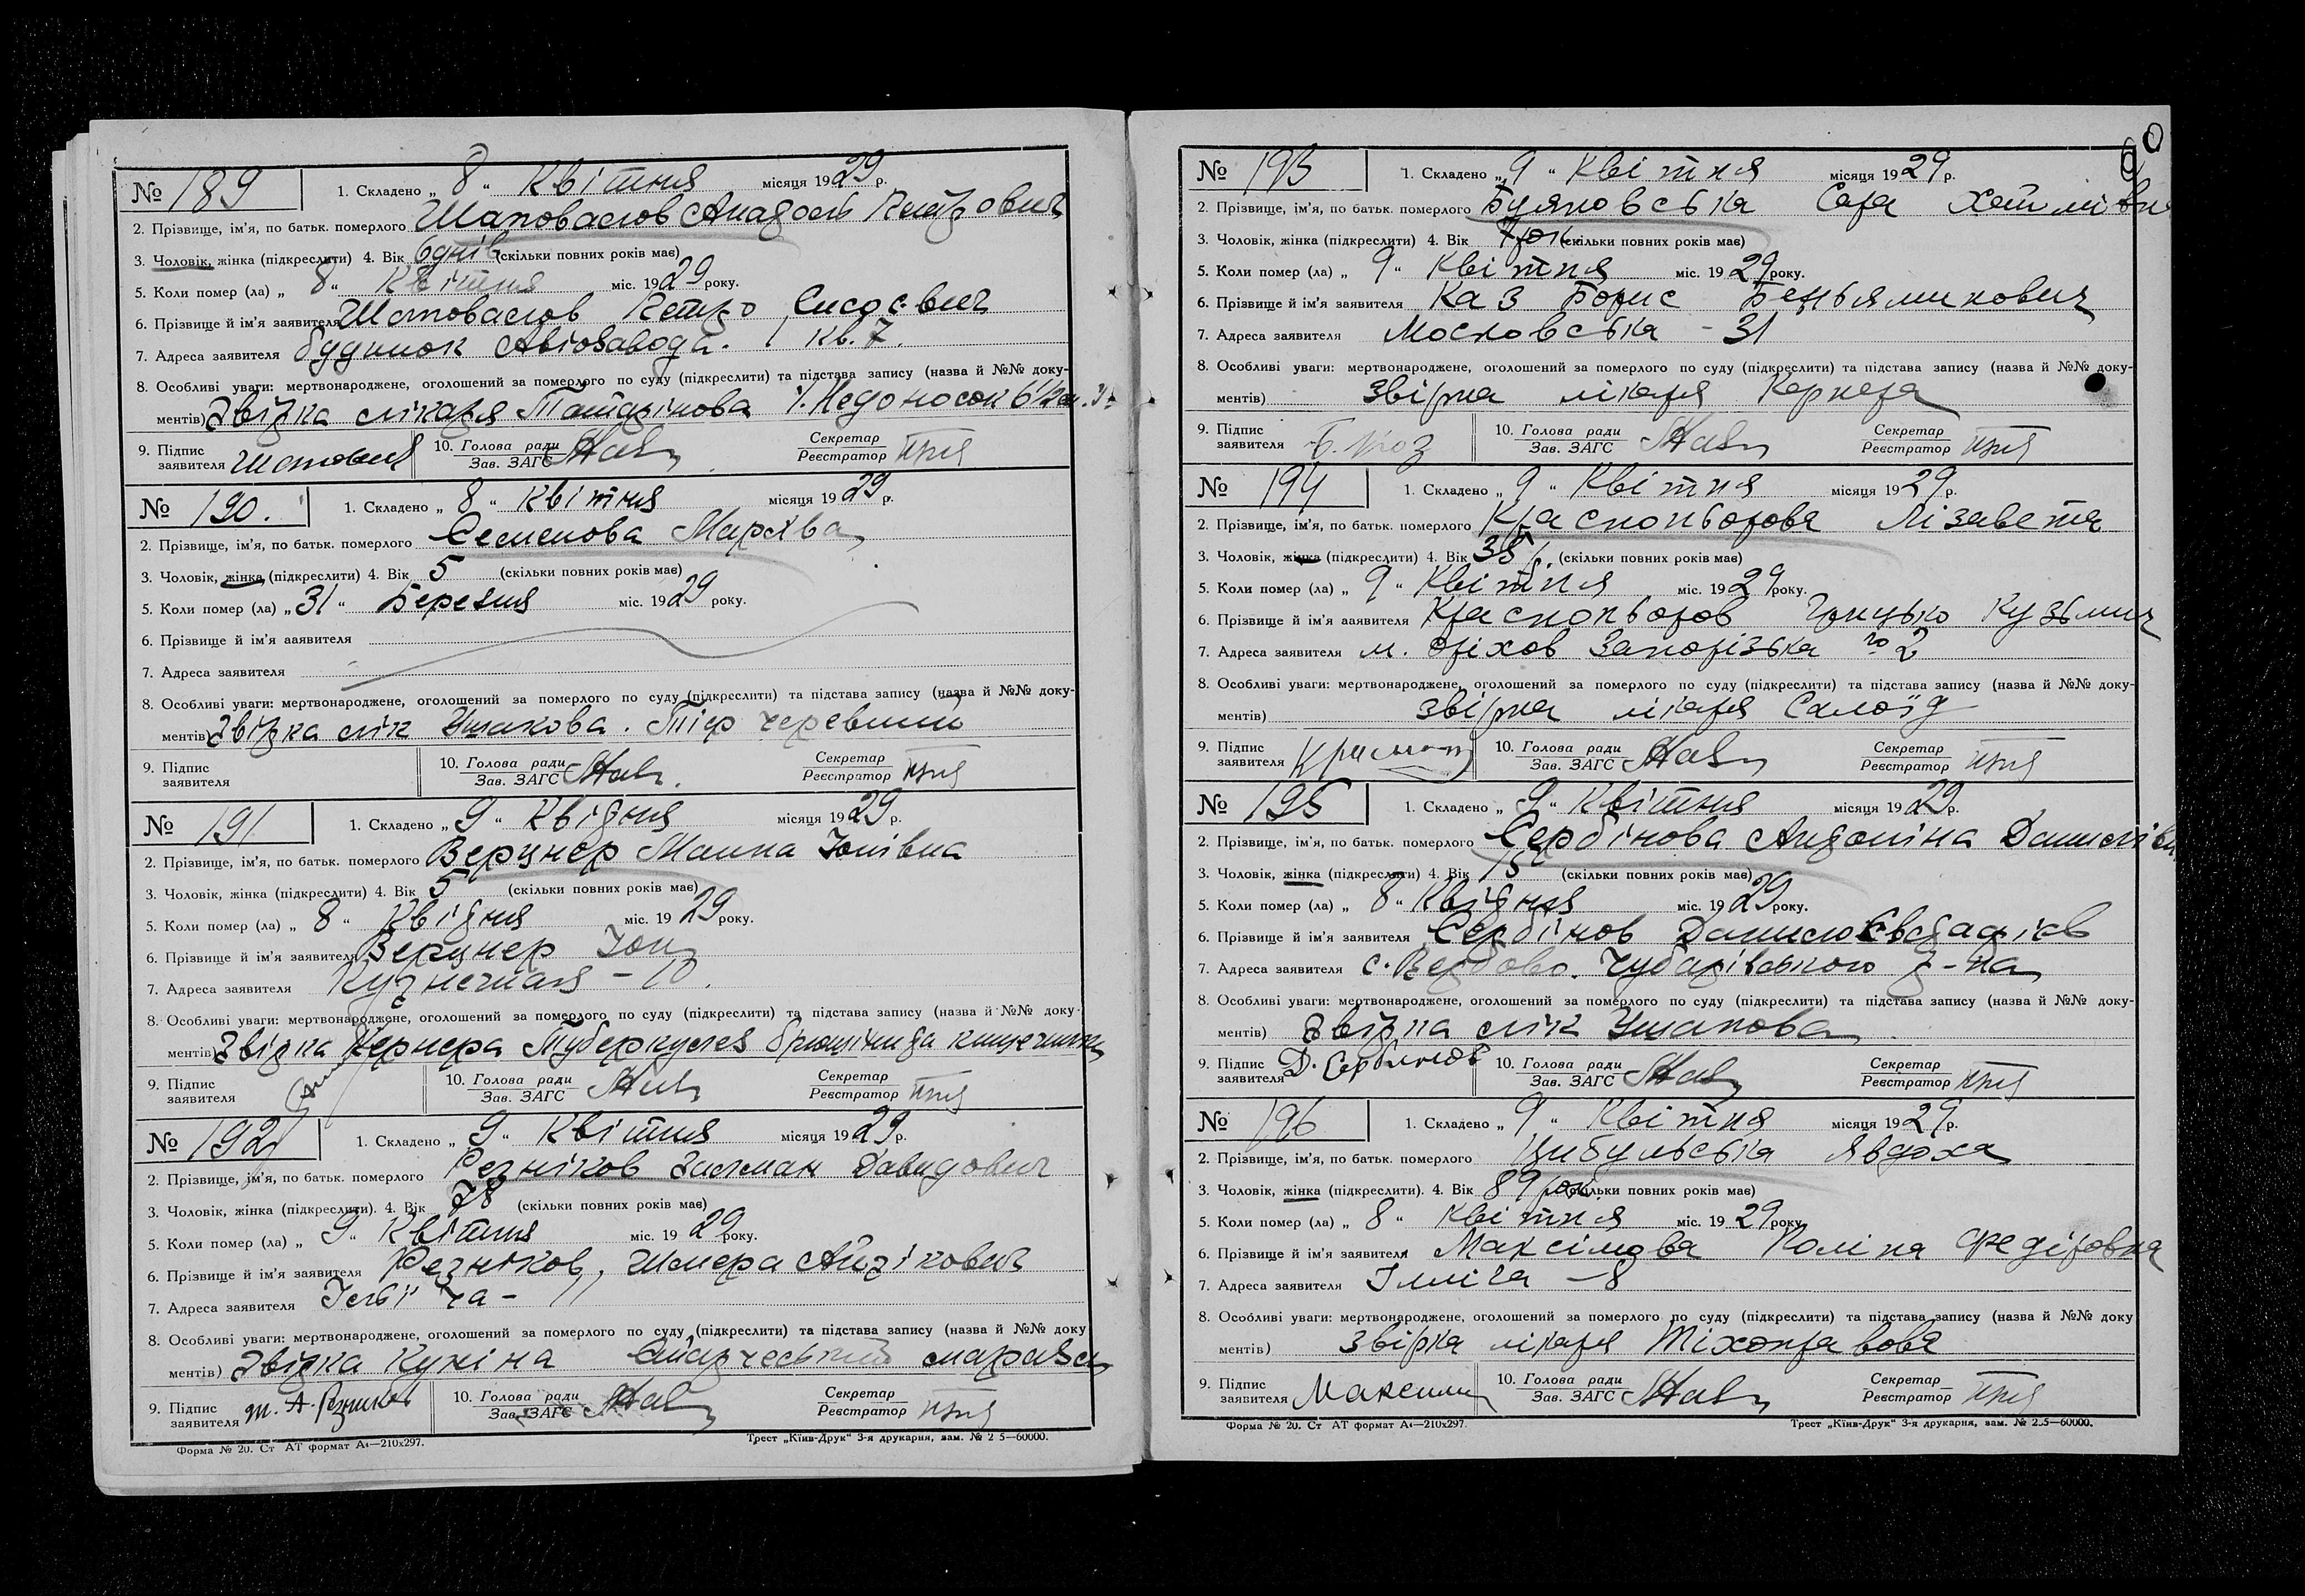 № 189 1. Складено „ 8 “ Квітня місяця 1929 р.
2. Прізвище, ім'я, по батьк. померлого Шаповалов Анадолій Петрович
3. Чоловік, жінка (підкреслити) 4. Вік 6 днів (скільки повних років має)
5. Коли помер (ла) „ 8 “ Квітня міс. 1929 року.
6. Прізвище й ім'я заявителя Шаповалов Петро
7. Адреса заявителя будинок Авіозавода. 1 Кв. 7.
8. Особливі уваги: мертвонароджене, оголошений за померлого по суду (підкреслити) та підстава запису (назва й №№ доку-
ментів) Звірка лікаря Татарінова Недоносок 6½
9. Підпис заявителя 10. Голова ради Зав. ЗАГС Секретар Реєстратор
№ 190. 1. Складено „ 8 “ Квітня місяця 1929 р.
2. Прізвище, ім'я, по батьк. померлого Семенова
3. Чоловік, жінка (підкреслити) 4. Вік 5 (скільки повних років має)
5. Коли помер (ла) „ 31 “ Березня міс. 1929 року.
6. Прізвище й ім'я заявителя
7. Адреса заявителя
8. Особливі уваги: мертвонароджене, оголошений за померлого по суду (підкреслити) та підстава запису (назва й №№ доку-
ментів) Звірка лік Ушакова.
9. Підпис заявителя 10. Голова ради Зав. ЗАГС Секретар Реєстратор
№ 191 1. Складено „ 9 “ Квідня місяця 1929 р.
2. Прізвище, ім'я, по батьк. померлого Верцнер Манна Іонівна
3. Чоловік, жінка (підкреслити) 4. Вік 5 (скільки повних років має)
5. Коли помер (ла) „ 8 “ Квідня міс. 1929 року.
6. Прізвище й ім'я заявителя Верцнер Іон
7. Адреса заявителя Кузнечная – 10.
8. Особливі уваги: мертвонароджене, оголошений за померлого по суду (підкреслити) та підстава запису (назва й №№ доку-
ментів) Звірка Кернера Туберкулез
9. Підпис заявителя 10. Голова ради Зав. ЗАГС Секретар Реєстратор
№ 192 1. Складено „ 9 “ Квітня місяця 1929 р.
2. Прізвище, ім'я, по батьк. померлого Резніков Залман Давидович
3. Чоловік, жінка (підкреслити). 4. Вік 78 (скільки повних років має)
5. Коли помер (ла) „ 9 “ Квітня міс. 1929 року.
6. Прізвище й ім'я заявителя Резніков, Шмера Айзікович
7. Адреса заявителя
8. Особливі уваги: мертвонароджене, оголошений за померлого по суду (підкреслити) та підстава запису (назва й №№ доку
ментів) Звірка Куніна
9. Підпис заявителя 10. Голова ради Зав. ЗАГС Секретар Реєстратор
Форма № 20. Ст АТ формат А4—210х297. Трест „Київ-Друк“ 3-я друкарня, зам. № 2 5—60000.
№ 193 1. Складено „ 9 “ Квітня місяця 1929 р.
2. Прізвище, ім'я, по батьк. померлого Буяновська Сара
3. Чоловік, жінка (підкреслити) 4. Вік 7 рок. (скільки повних років має)
5. Коли помер (ла) „ 9 “ Квітня міс. 1929 року.
6. Прізвище й ім'я заявителя Каз Борис Беньяминович
7. Адреса заявителя Московська – 31
8. Особливі уваги: мертвонароджене, оголошений за померлого по суду (підкреслити) та підстава запису (назва й №№ доку-
ментів) Звірка лікаря Кернера
9. Підпис заявителя 10. Голова ради Зав. ЗАГС Секретар Реєстратор
№ 194 1. Складено „ 9 “ Квітня місяця 1929 р.
2. Прізвище, ім'я, по батьк. померлого Краснопьорова Лізавета
3. Чоловік, жінка (підкреслити) 4. Вік 38 р. (скільки повних років має)
5. Коли помер (ла) „ 9 “ Квітня міс. 1929 року.
6. Прізвище й ім'я заявителя Краснопьоров Грицько Кузьмич
7. Адреса заявителя м. Оріхов Запорізька № 2
8. Особливі уваги: мертвонароджене, оголошений за померлого по суду (підкреслити) та підстава запису (назва й №№ доку-
ментів) Звірка лікаря Самойд
9. Підпис заявителя 10. Голова ради Зав. ЗАГС Секретар Реєстратор
№ 195 1. Складено „ 9 “ Квітня місяця 1929 р.
2. Прізвище, ім'я, по батьк. померлого Сербінова Андоніна
3. Чоловік, жінка (підкреслити) 4. Вік 15 (скільки повних років має)
5. Коли помер (ла) „ 8 “ Квідня міс. 1929 року.
6. Прізвище й ім'я заявителя Сербінов Данило
7. Адреса заявителя с. Вербово. Чубарівського р-на
8. Особливі уваги: мертвонароджене, оголошений за померлого по суду (підкреслити) та підстава запису (назва й №№ доку-
ментів) Звірка лік Ушакова
9. Підпис заявителя Д. Сербинов 10. Голова ради Зав. ЗАГС Секретар Реєстратор
№ 196 1. Складено „ 9 “ Квітня місяця 1929 р.
2. Прізвище, ім'я, по батьк. померлого Цибульська Явдоха
3. Чоловік, жінка (підкреслити). 4. Вік 89 рок. (скільки повних років має)
5. Коли помер (ла) „ 8 “ Квітня міс. 1929 року.
6. Прізвище й ім'я заявителя Максімова Поліна Федіровна
7. Адреса заявителя Ілліча – 8
8. Особливі уваги: мертвонароджене, оголошений за померлого по суду (підкреслити) та підстава запису (назва й №№ доку
ментів) Звірка лікаря Тіхонравова
9. Підпис заявителя 10. Голова ради Зав. ЗАГС Секретар Реєстратор
Форма № 20. Ст АТ формат А4—210х297. Трест „Київ-Друк“ 3-я друкарня, зам. № 2.5—60000.